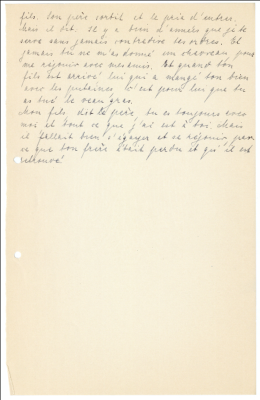 fils. Son père sortit et le pria d'entrer.
Mais il dit. Il y a bien d'années que je te
sers sans jamais contredire tes ordres. Et
jamais tu ne m'as donné un chevreau pour
me réjouir avec mes amis. Et quand ton
fils est arrivé lui qui a mangé ton bien
avec les putaines c'est pour lui que tu
as tué le veau gras.
Mon fils dit le père, tu es toujours avec
moi et tout ce que j'ai est à toi, Mais
il fallait bien s'égayer et se réjouir par
ce que ton frère était perdu et qu'il est
retrouvé